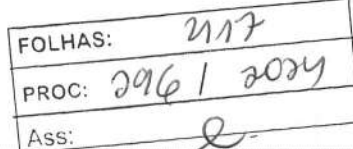 FOLHAS: 2117
PROC: 296 / 2024
Ass: